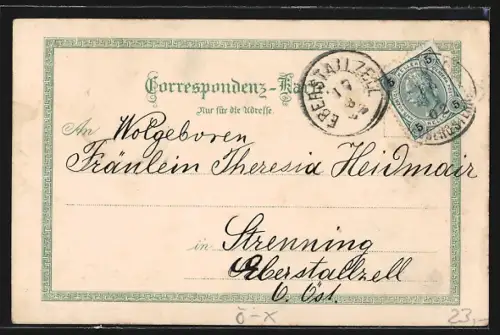 Correspondenz-Karte
Nur für die Adresse.
EBERSTALLZELL
17
5 5
5 5
An Wolgeboren
Fräulein Theresia Heidmair
in Strenning
Eberstallzell
O. Öst.
ö-x
23,-